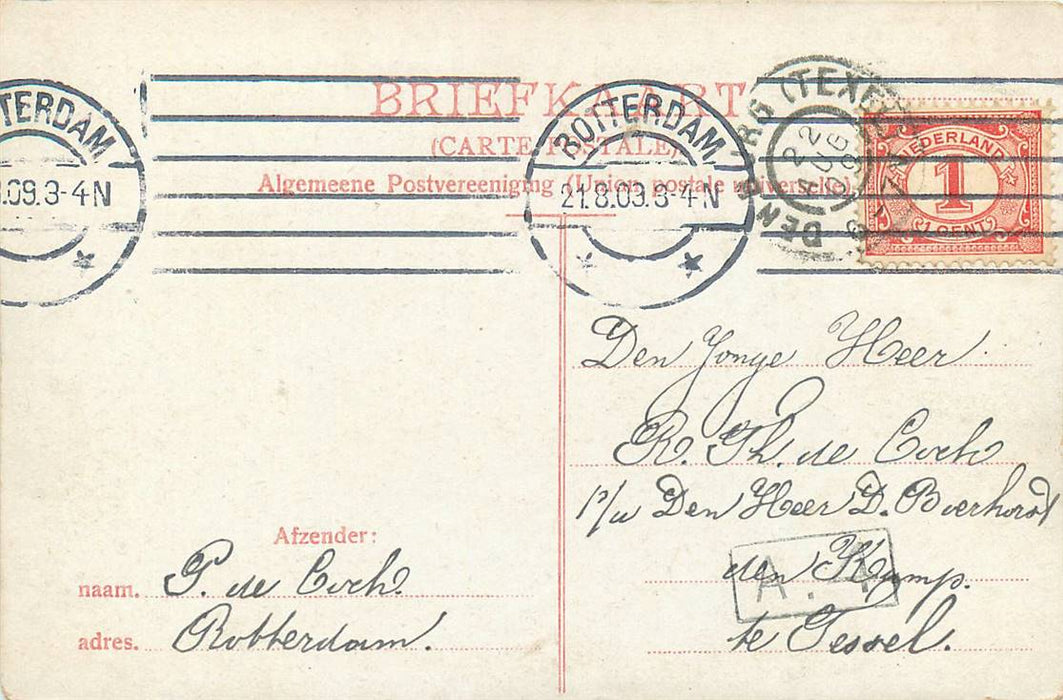 BRIEFKAART
(CARTE POSTALE)
Algemeene Postvereeniging (Union postale universelle)
TTERDAM
.09.3-4N
ROTTERDAM
21.8.09.3-4N
DEN BURG (TEXEL)
22
AUG
09
NEDERLAND
1
1 CENT
Den Jonge Heer
R. Th. de Coch
p/u Den Heer D.
den Kamp.
te Tessel.
A.A
Afzender:
naam. P. de Coch.
adres. Rotterdam.